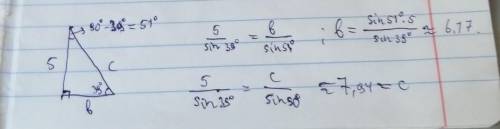 90°-39°=51°
5
c
39°
b
5/sin 39° = b/sin 51° ; b = sin 51°·5/sin 39° ≈ 6.17.
5/sin 39° = c/sin 90° ≈ 7,94 = c